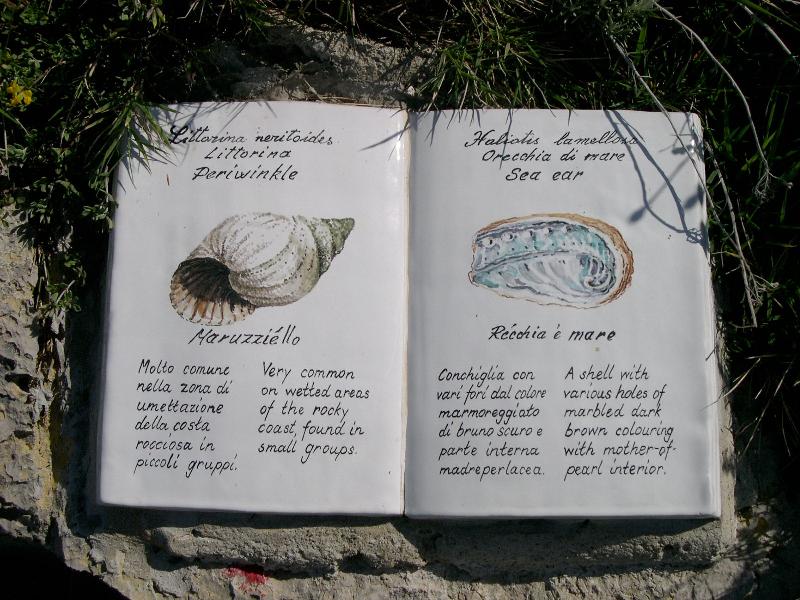 Littorina neritoides
Littorina
Periwinkle
Maruzziéllo
Molto comune
nella zona di
umettazione
della costa
rocciosa in
piccoli gruppi.
Very common
on wetted areas
of the rocky
coast, found in
small groups.
Haliotis lamellosa
Orecchia di mare
Sea ear
Récchia 'e mare
Conchiglia con
vari fori dal colore
marmoreggiato
di bruno scuro e
parte interna
madreperlacea.
A shell with
various holes of
marbled dark
brown colouring
with mother-of-
pearl interior.